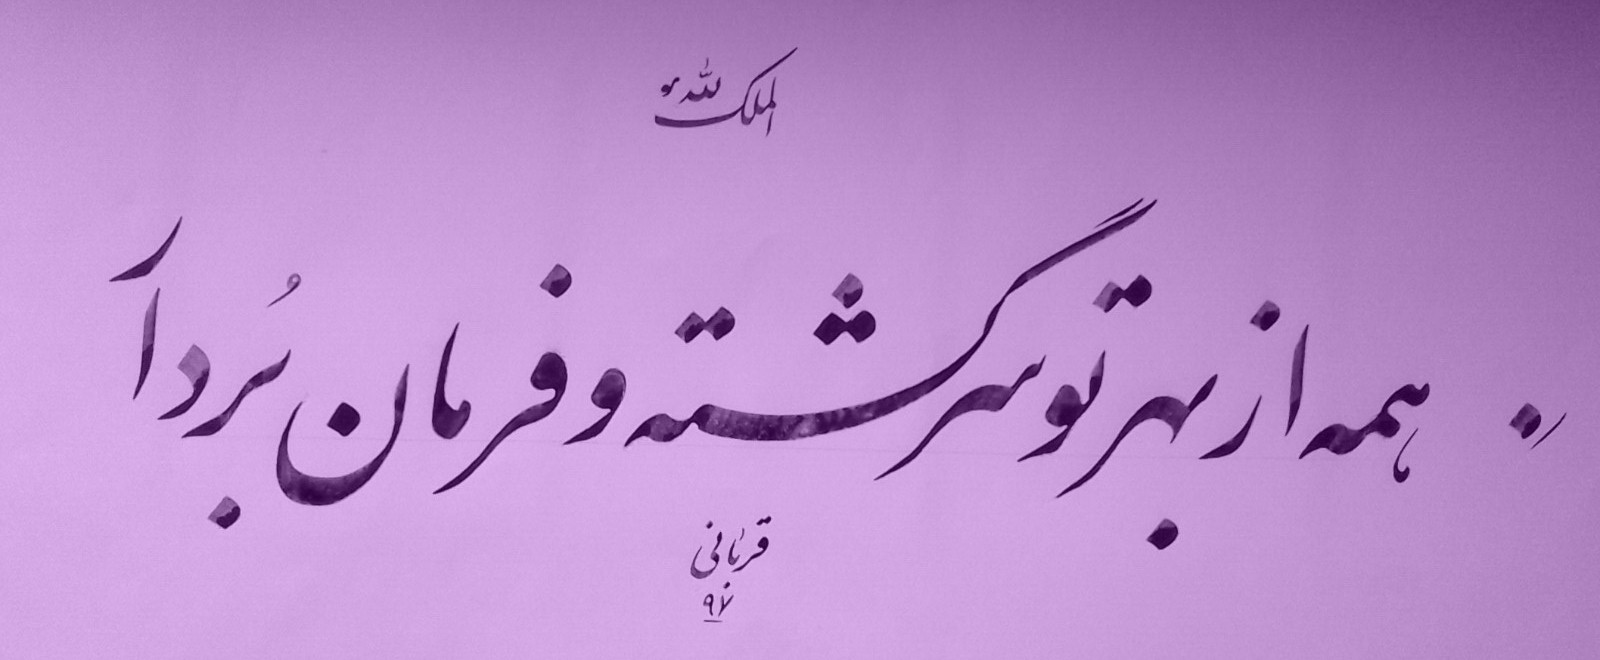 الملک لله
همه از بهر تو سرگشته و فرمان بُردار
قربانی
۹۷